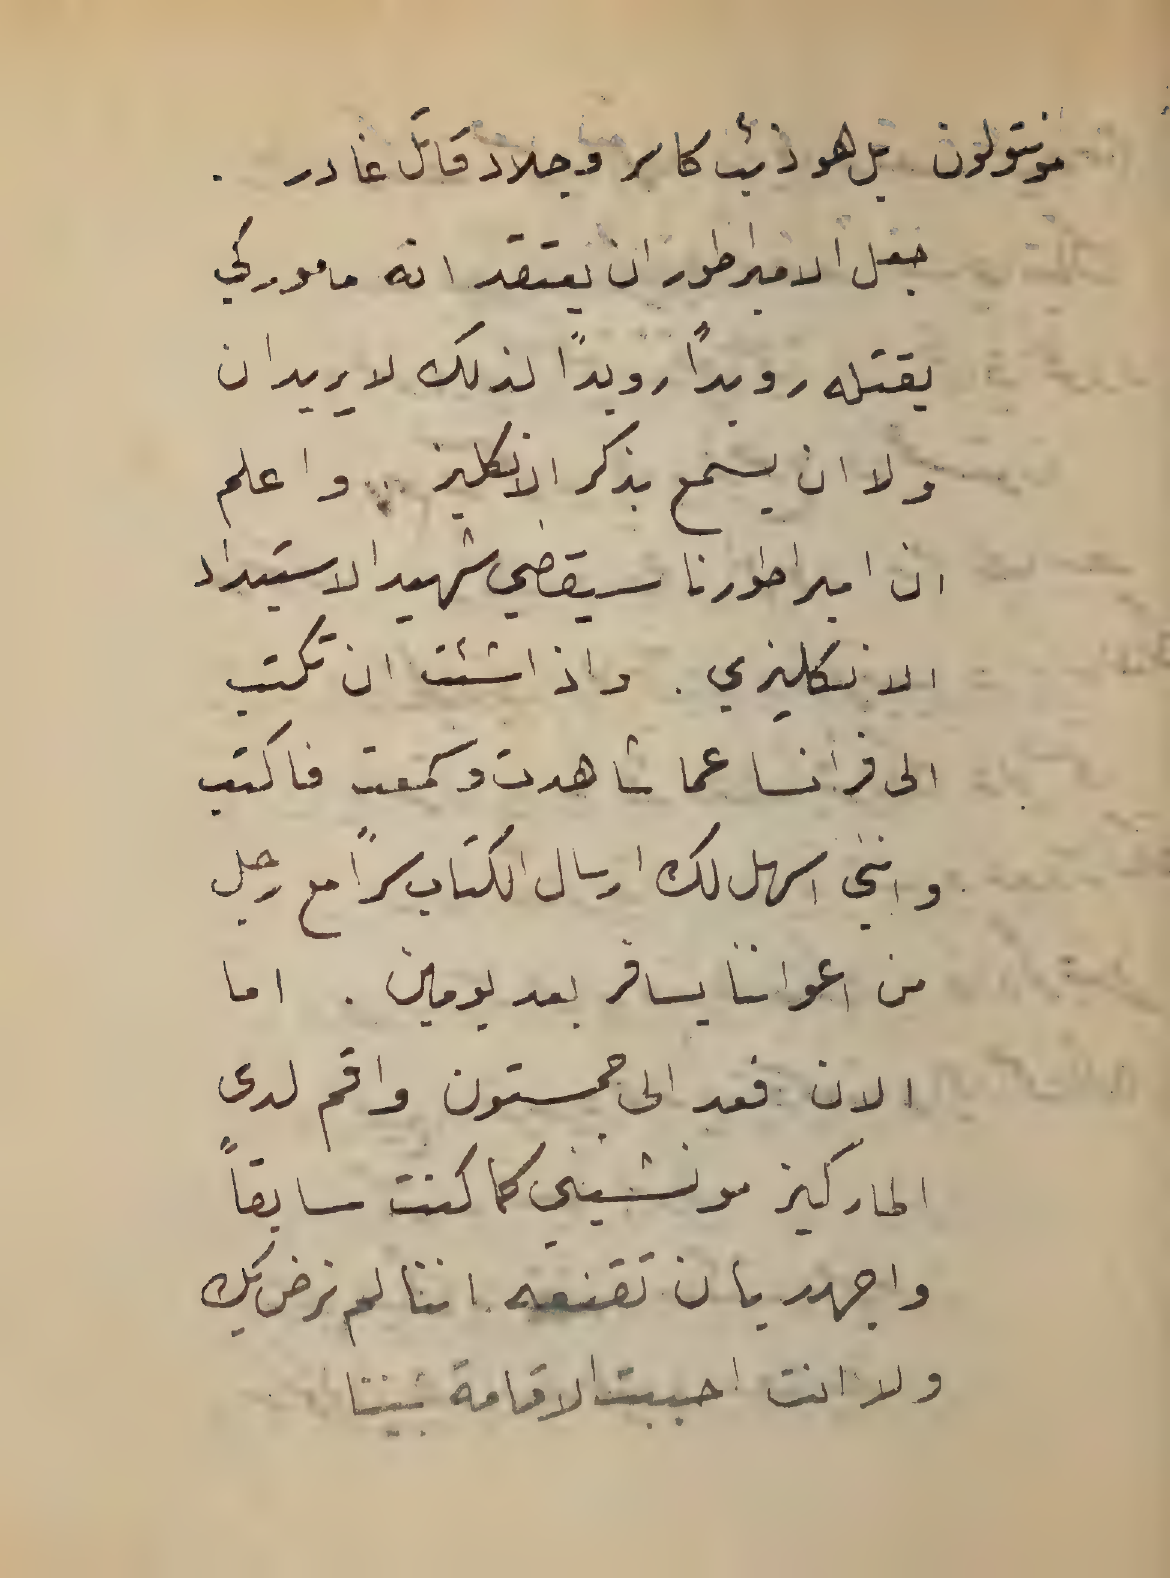 مونتولون بل هو ذئب كاسر وجلاد قاتل غادر .
جعل الامبراطور ان يعتقد انه مامور كي
يقتله رويداً رويداً لذلك لا يريد ان
ولا ان يسمع بذكر الانكليز .. واعلم
ان امبراطورنا سيقضي شهيد الاستبداد
الانكليزي . واذا شئت ان تكتب
الى فرانسا عما شاهدت وسمعت فاكتب
وانني اسهل لك ارسال الكتاب سراً مع رجل
من اعواننا يسافر بعد يومين . اما
الان فعد الى جمستون واقم لدى
الماركيز مونشيني كما كنت سابقاً
واجهد بان تقنعه اننا لم نرض بك
ولا انت احببت الاقامة بيننا